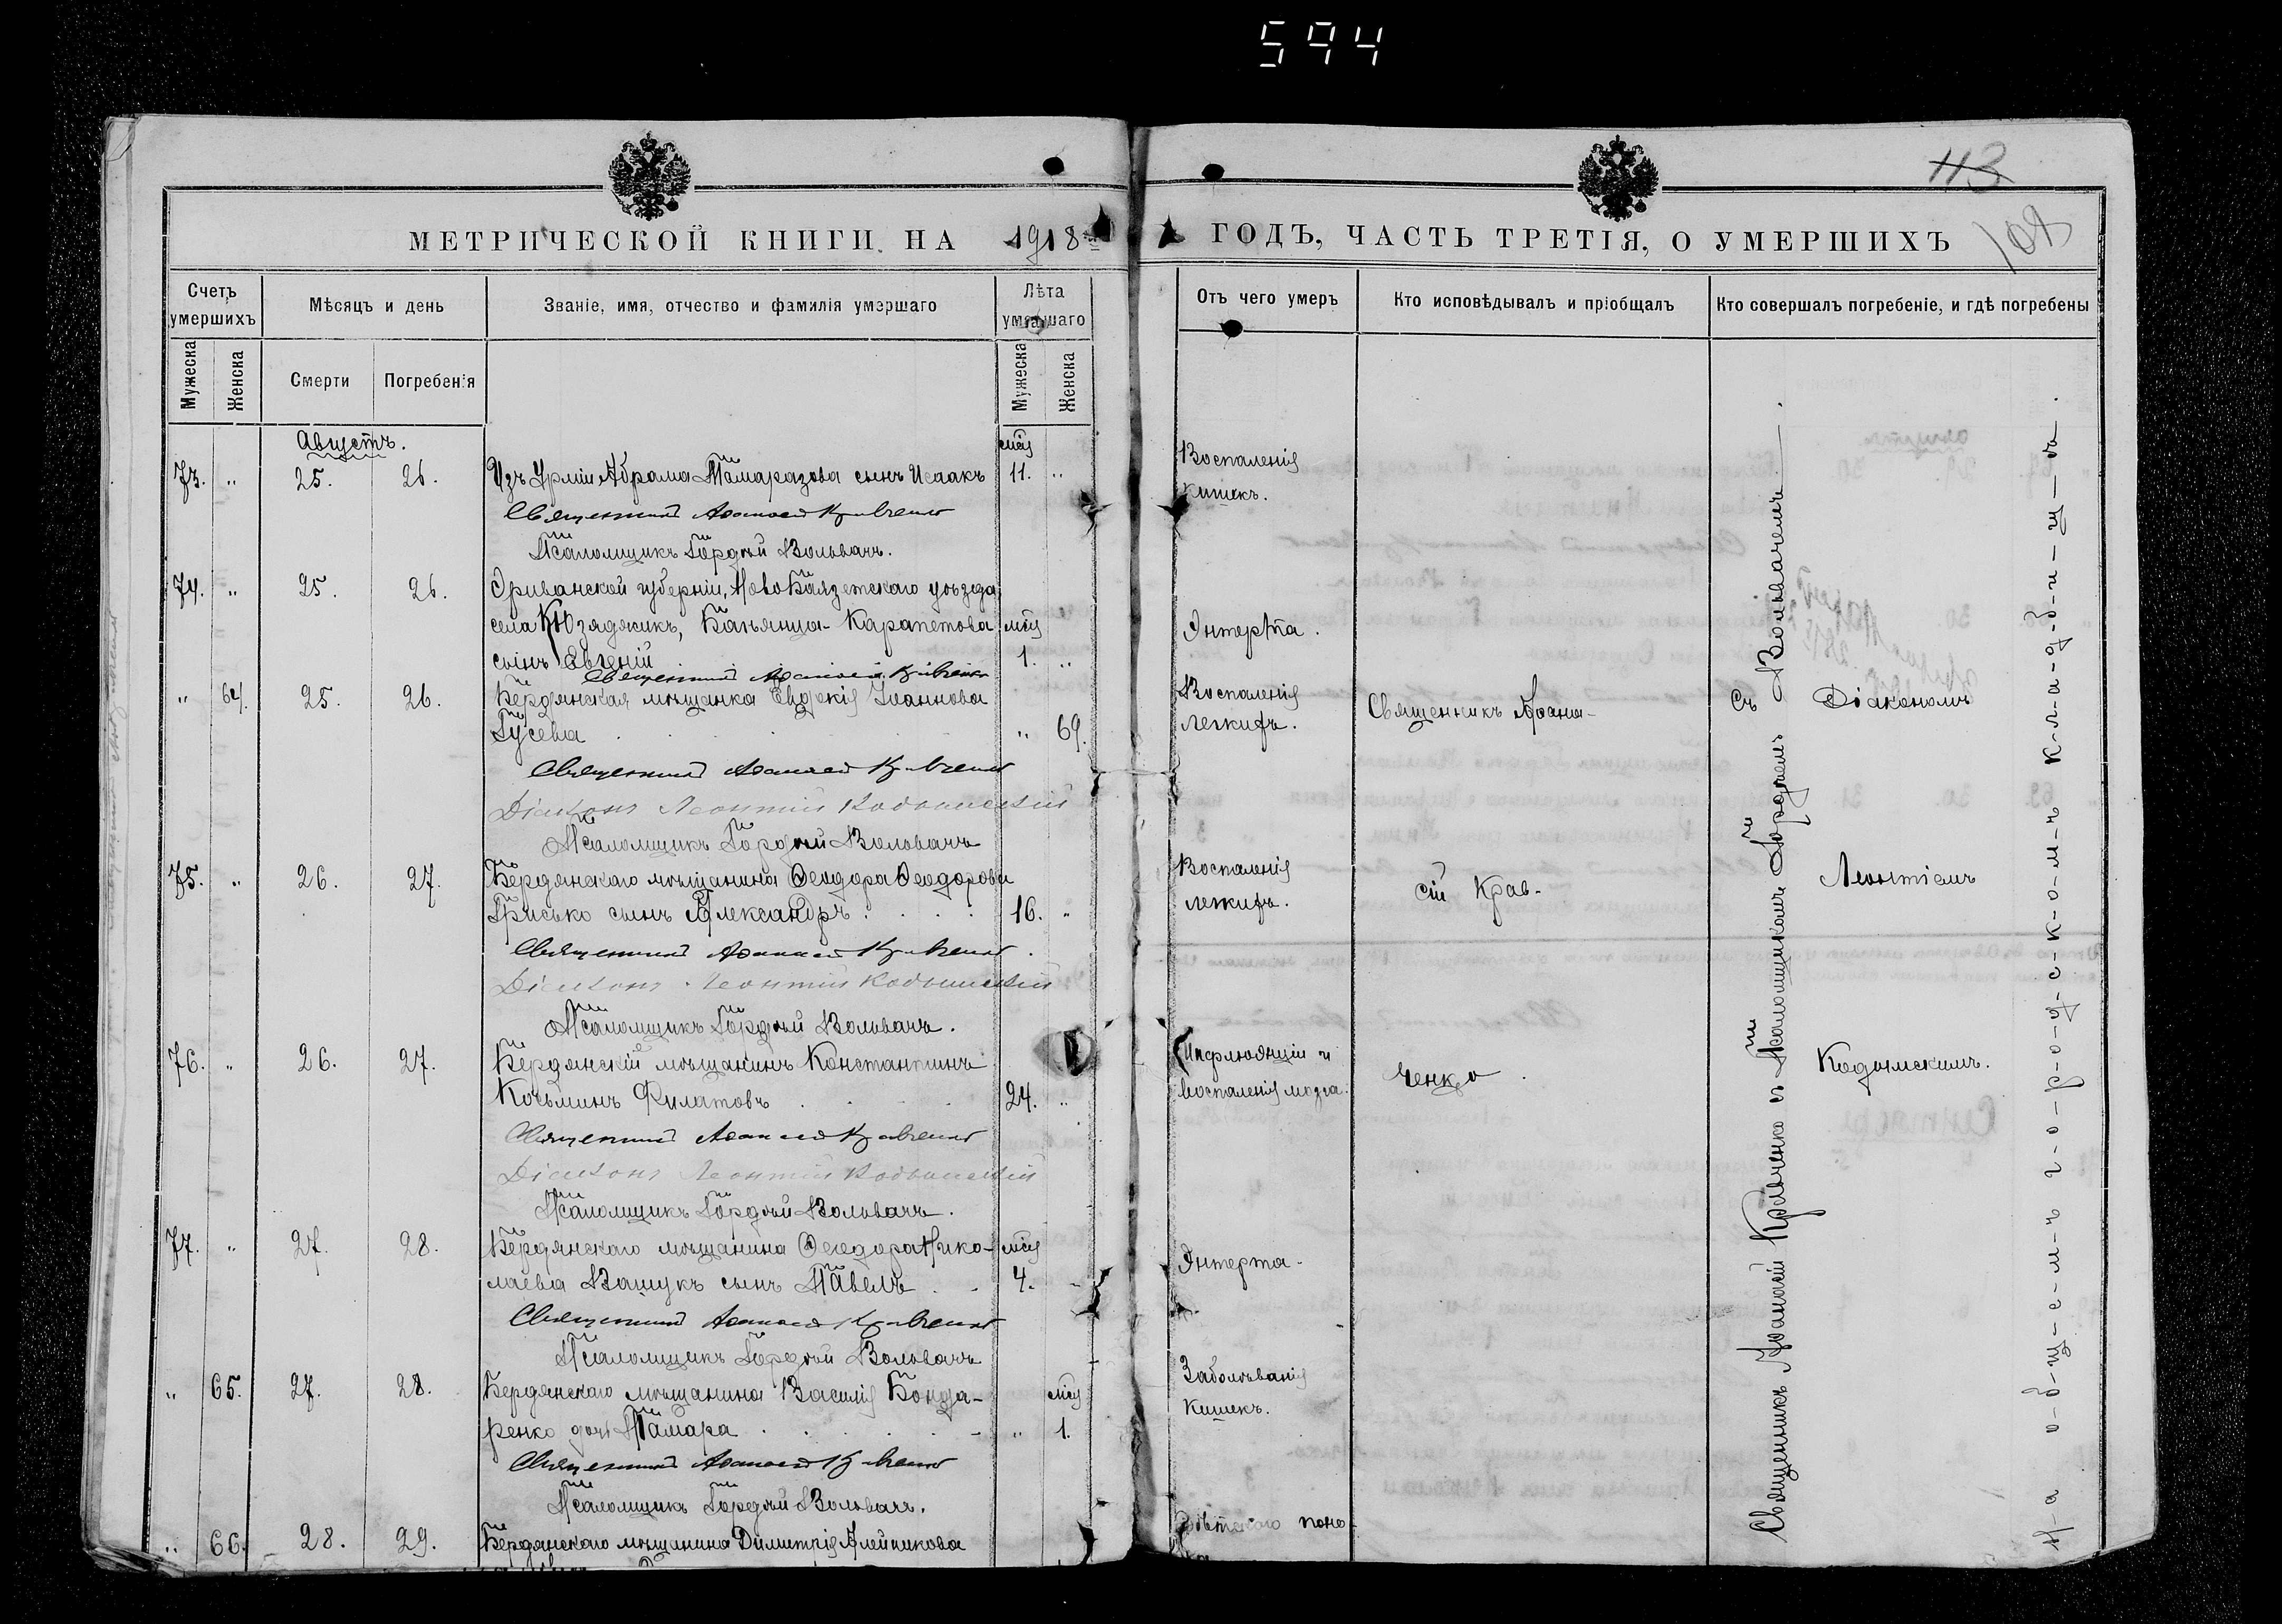 594
113
109
МЕТРИЧЕСКОЙ КНИГИ НА 1918 ГОДЪ, ЧАСТЬ ТРЕТІЯ, О УМЕРШИХЪ
Счетъ умершихъ
Мѣсяцъ и день
Званіе, имя, отчество и фамилія умершаго
Лѣта умершаго
Отъ чего умеръ
Кто исповѣдывалъ и пріобщалъ
Кто совершалъ погребеніе, и гдѣ погребены
Мужеска
Женска
Смерти
Погребенія
Мужеска
Женска
Августъ.
мѣс
73. " 25. 26. Изъ Урміи Абрама Тамаразова сынъ Исаакъ 11. " Воспаленія
кишекъ.
Священникъ Аѳанасій Кравченко
Псаломщикъ Гордѣй Вольвачъ.
74. " 25. 26. Эриванской губерніи, Ново Баязетскаго уѣзда
села Кюзяджикъ, Карапетова мѣс Энтерита.
сынъ Евгеній 1. "
Священникъ Аѳанасій Кравченко
" 64. 25. 26. Бердянская мѣщанка Евдокія Іоаннова Воспаленія
Гусева " 69. легкихъ.
Священникъ Аѳанасій Кравченко
Діаконъ Леонтій Кодымскій
Псаломщикъ Гордѣй Вольвачъ
75. " 26. 27. Бердянскаго мѣщанина Ѳеодора Ѳеодорова Воспаленія
Грисько сынъ Александръ 16. " легкихъ.
Священникъ Аѳанасій Кравченко
Діаконъ Леонтій Кодымскій
Псаломщикъ Гордѣй Вольвачъ.
76. " 26. 27. Бердянскій мѣщанинъ Константинъ Инфлюэнціи и
Козьминъ Филатовъ 24. " воспаленія мозга.
Священникъ Аѳанасій Кравченко
Діаконъ Леонтій Кодымскій
Псаломщикъ Гордѣй Вольвачъ.
77. " 27. 28. Бердянскаго мѣщанина Ѳеодора Нико- мѣс
лаева Вашукъ сынъ Павелъ 4. Энтерита.
Священникъ Аѳанасій Кравченко
Псаломщикъ Гордѣй Вольвачъ
" 65. 27. 28. Бердянскаго мѣщанина Василія Бонда- мѣс Заболѣванія
ренко дочь Тамара " 1. кишекъ.
Священникъ Аѳанасій Кравченко
Псаломщикъ Гордѣй Вольвачъ.
" 66. 28. 29. Бердянскаго мѣщанина Димитрія Алейникова Дѣтскаго поно-
Священникъ Аѳана-
сій Крав-
ченко.
Священникъ Аѳанасій Кравченко и Псаломщикомъ Гордѣемъ Вольвачемъ
Съ Діакономъ
Леонтіемъ
Кодымскимъ.
Н-а о-б-щ-е-м-ъ г-о-р-о-д-с-к-о-м-ъ к-л-а-д-б-и-щ-ѣ.